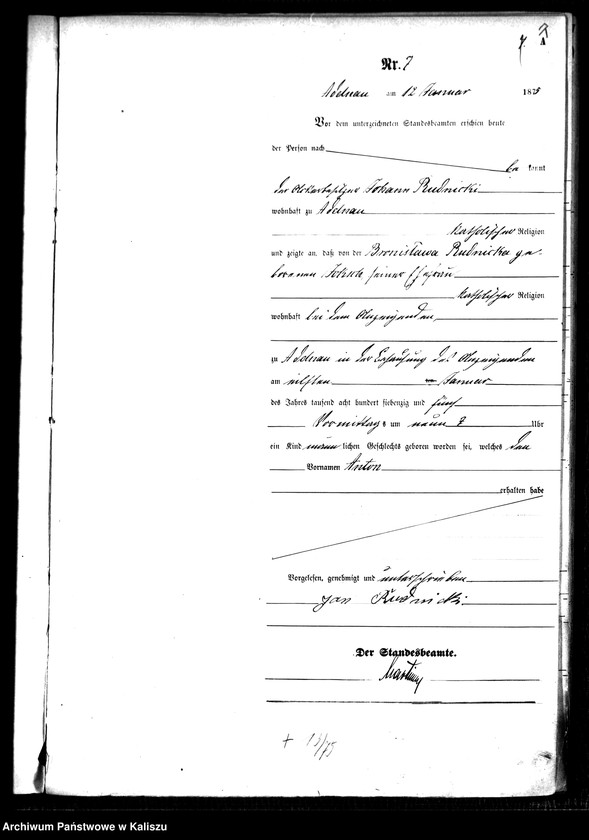 7. A
Nr. 7
Adelnau am 12 Januar 1875
Vor dem unterzeichneten Standesbeamten erschien heute
der Person nach
be kannt
der Ackerbesitzer Johann Rudnicki
wohnhaft zu Adelnau
katholischer Religion
und zeigte an, daß von der Bronisława Rudnicka ge-
borenen seiner Ehefrau
katholischer Religion
wohnhaft bei dem Anzeigenden,
zu Adelnau in der Behausung des Anzeigenden
am eilften Januar
des Jahres tausend acht hundert siebenzig und fünf
Vormittags um neun Uhr
ein Kind männlichen Geschlechts geboren worden sei, welches den
Vornamen Anton
erhalten habe
Vorgelesen, genehmigt und unterschrieben
Jan Rudnicki
Der Standesbeamte.
+ 13/75
Archiwum Państwowe w Kaliszu